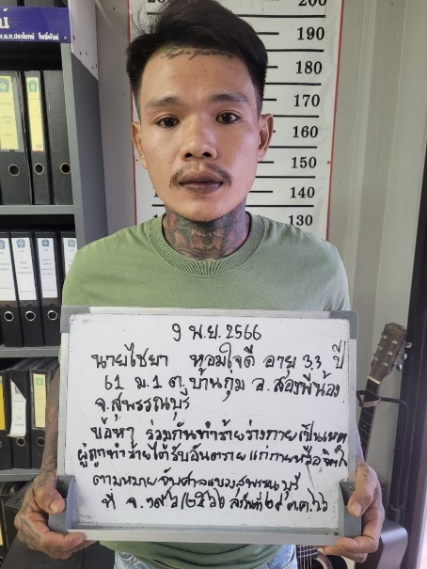 200
190
180
170
160
150
140
130
9 พ.ย. 2566
นายไชยา หอมใจดี อายุ 33 ปี
61 ม.1 ต.บ้านกุ่ม อ.สองพี่น้อง
จ.สุพรรณบุรี
ข้อหา ร่วมกันทำร้ายร่างกายเป็นเหตุ
ผู้ถูกทำร้ายได้รับอันตรายแก่กายหรือจิตใจ
ตามหมายจับศาลแขวงสุพรรณบุรี
ที่ จ.